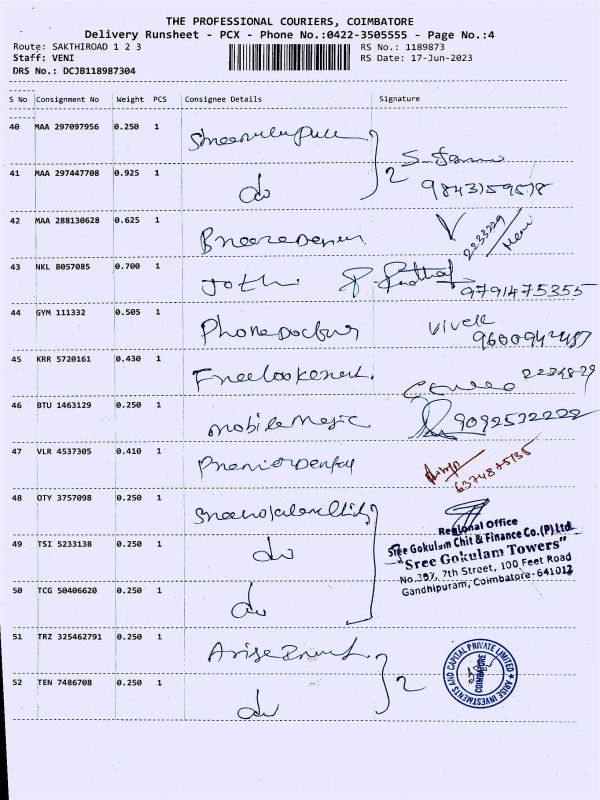 THE PROFESSIONAL COURIERS, COIMBATORE
Delivery Runsheet - PCX - Phone No.:0422-3505555 - Page No.:4
Route: SAKTHIROAD 1 2 3 RS No.: 1189873
Staff: VENI RS Date: 17-Jun-2023
DRS No.: DCJB118987304
S No Consignment No Weight PCS Consignee Details Signature
40 MAA 297097956 0.250 1
41 MAA 297447708 0.925 1 do 2
9843159518
42 MAA 288130628 0.625 1 2233229
43 NKL 8057085 0.700 1 Jothi 9791475355
44 GYM 111332 0.505 1 Phone Doctor Vivek
45 KRR 5720161 0.430 1
46 BTU 1463129 0.250 1 mobile magic 9092522222
47 VLR 4537305 0.410 1 6374875135
48 OTY 3757098 0.250 1
Regional Office
49 TSI 5233138 0.250 1 do Sree Gokulam Chit & Finance Co.(P)Ltd.
"Sree Gokulam Towers"
7th Street, 100 Feet Road
50 TCG 50406620 0.250 1 do Gandhipuram, Coimbatore-641012
51 TRZ 325462791 0.250 1 Arise
ARISE INVESTMENTS AND CAPITAL PRIVATE LIMITED
COIMBATORE
52 TEN 7486708 0.250 1 do 2